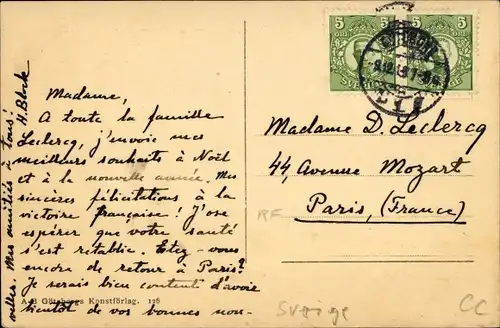 Madame,
A toute la famille
Leclercq, j'envoie mes
meilleurs souhaits à Noël
et à la nouvelle année. Mes
sincères félicitations à la
victoire française! J'ose
espérer que votre santé
s'est retablie. Etez-vous
encore de retour à Paris?
Je serais bien content d'avoir
bientôt de vos bonnes nou-
velles. Mes amitiés à tous!
H. Block
A.-B Göteborgs Konstförlag. 126
5 5
Madame D. Leclercq
44, Avenue Mozart
Paris, (France)
RF
Sverige
CC